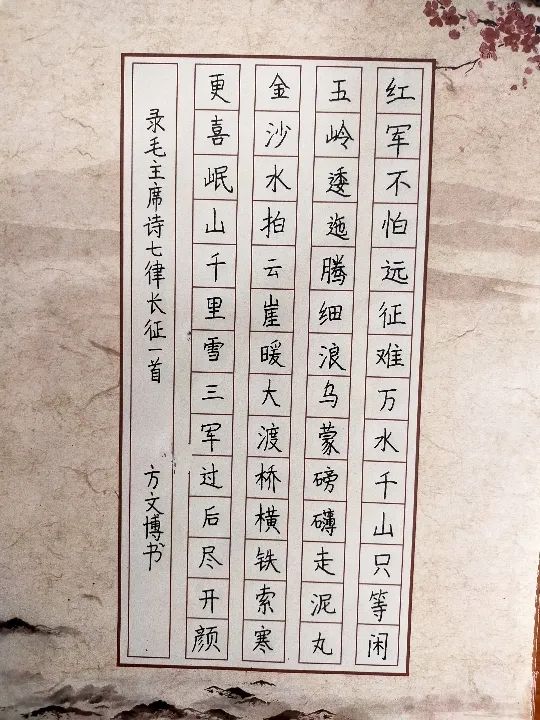 红军不怕远征难万水千山只等闲
五岭逶迤腾细浪乌蒙磅礴走泥丸
金沙水拍云崖暖大渡桥横铁索寒
更喜岷山千里雪三军过后尽开颜
录毛主席诗七律长征一首
方文博书